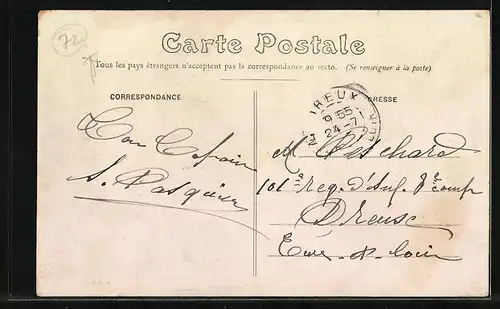 72
Carte Postale
Tous les pays étrangers n'acceptent pas la correspondance au recto. (Se renseigner à la poste)
CORRESPONDANCE
DRESSE
IREUX
9 55
24-7
Ton Copain
M
101e Reg. d'Inf. 8e comp
Dreux
Eure-et-Loir